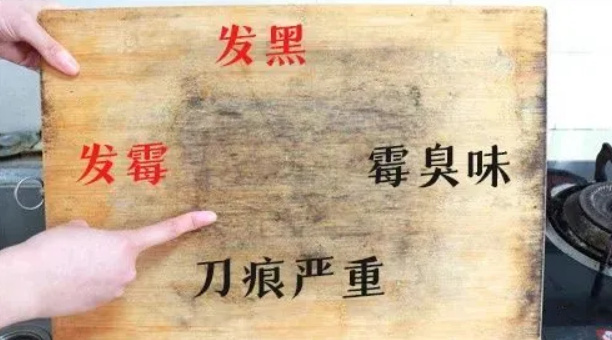 发黑
发霉
霉臭味
刀痕严重